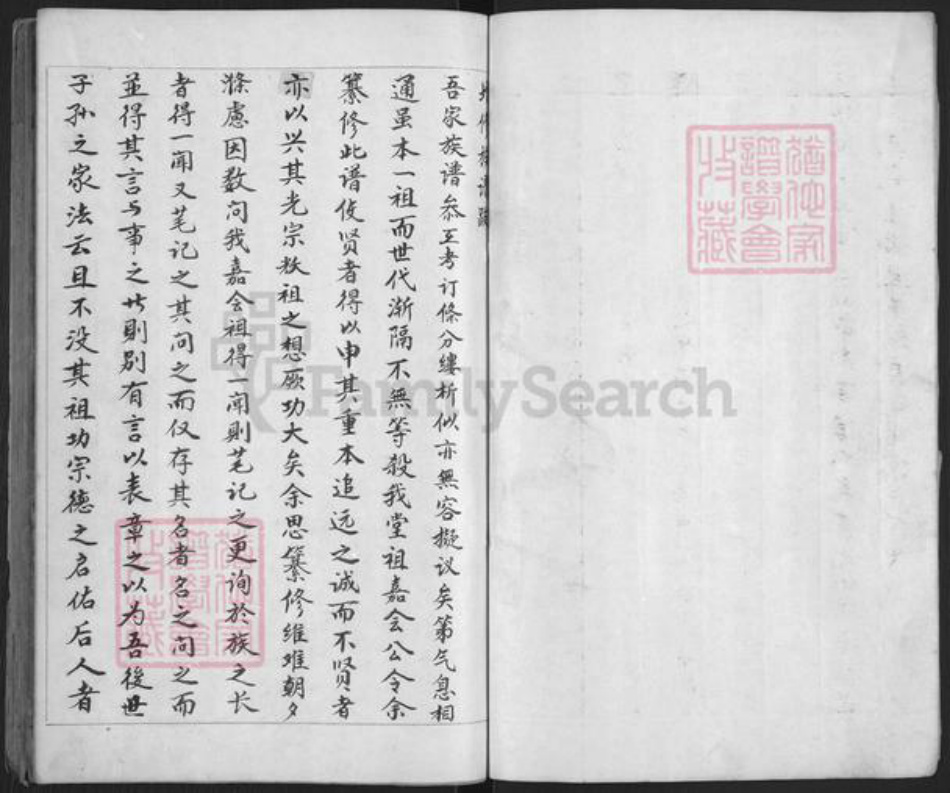 吾家族谱叅互考订條分缕析似亦無容擬议矣第气息相
通虽本一祖而世代渐隔不無等殺我堂祖嘉会公令余
纂修此谱俊贤者得以申其重本追远之诚而不贤者
亦以兴其光宗敬祖之想厥功大矣余思纂修维难朝夕
滌慮因数问我嘉会祖得一闻则笔记之更询於族之长
者得一闻又笔记之其问之而仅存其名者名之问之而
並得其言与事之則别有言以表章之以为吾後世
子孙之家法云且不没其祖功宗德之启佑后人者
譜學會
收藏
FamilySearch